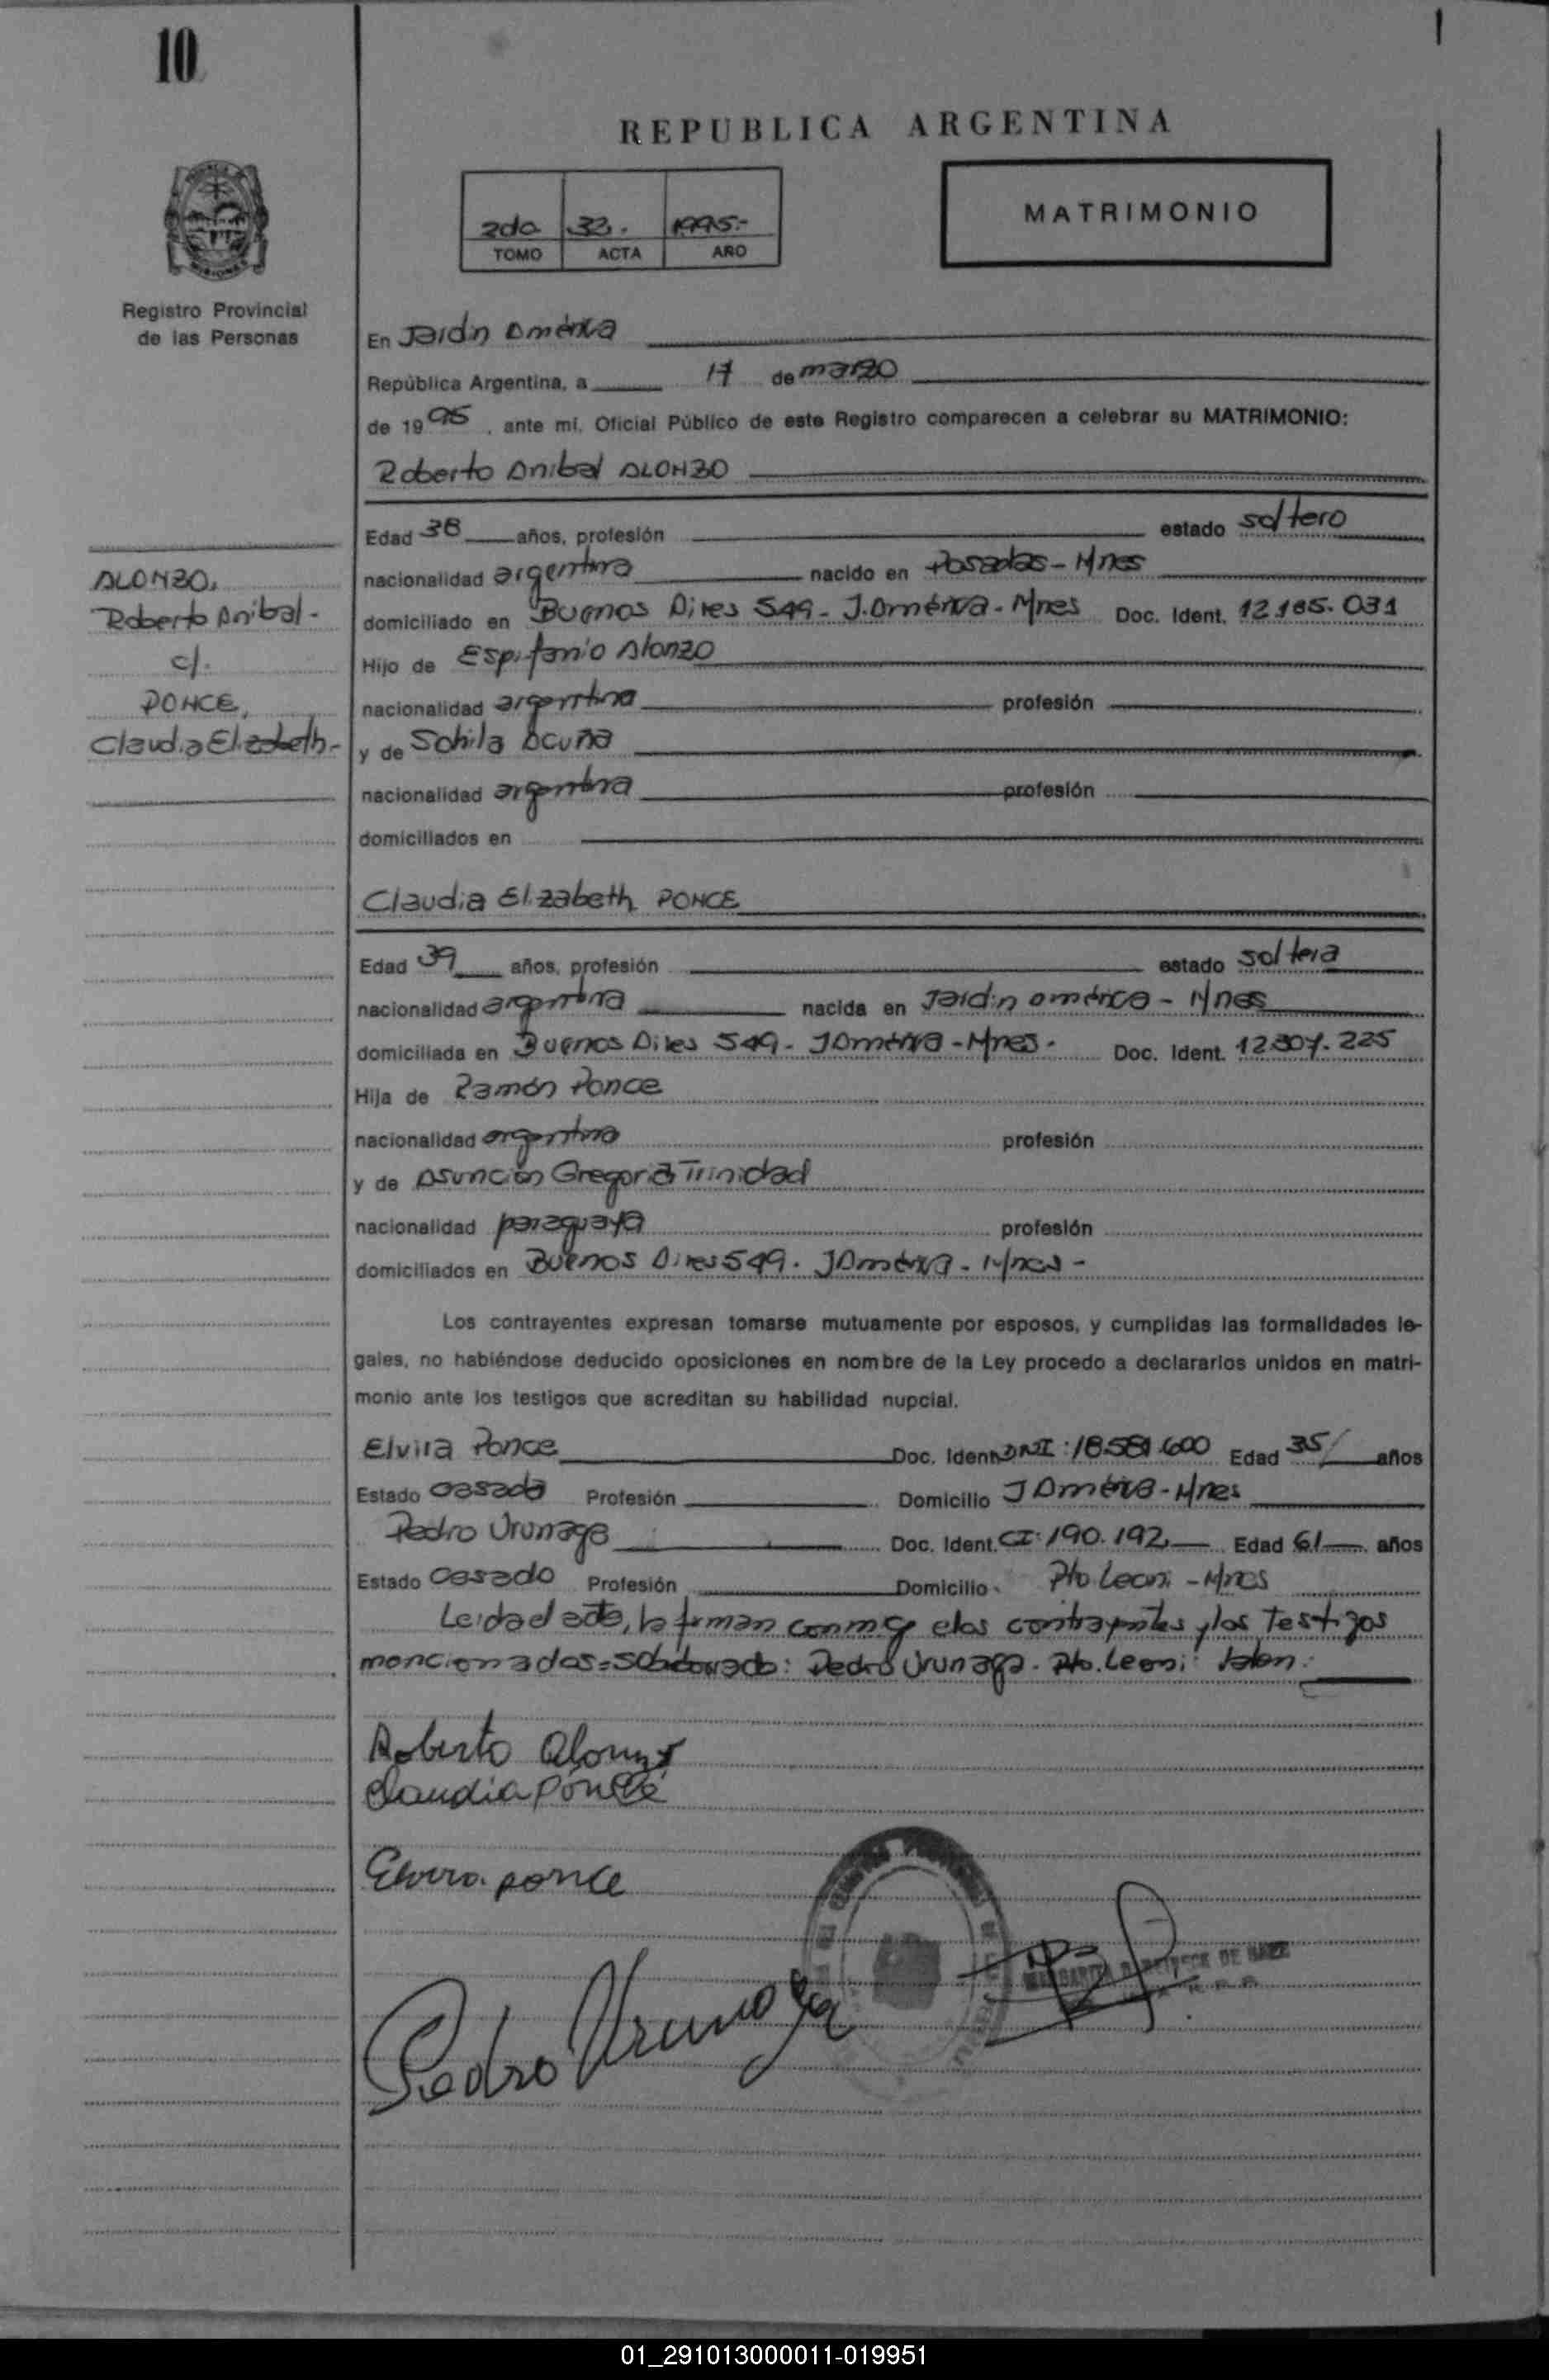 10
REPUBLICA ARGENTINA
2do 32. 1995.-
TOMO ACTA AÑO
MATRIMONIO
Registro Provincial
de las Personas
En Jardin América
República Argentina, a 17 de marzo
de 1995, ante mí, Oficial Público de este Registro comparecen a celebrar su MATRIMONIO:
Roberto Anibal ALONZO
Edad 38 años, profesión estado soltero
nacionalidad argentina nacido en Posadas - Mnes
domiciliado en Buenos Aires 549 - J. América - Mnes Doc. Ident. 12.185.031
Hijo de Espifanio Alonzo
nacionalidad argentina profesión
y de Sohila Acuña
nacionalidad argentina profesión
domiciliados en
ALONZO,
Roberto Anibal -
c/.
PONCE,
Claudia Elizabeth.-
Claudia Elizabeth PONCE
Edad 39 años, profesión estado soltera
nacionalidad argentina nacida en Jardin américa - Mnes
domiciliada en Buenos Aires 549 - J América - Mnes. Doc. Ident. 12.307.225
Hija de Ramón Ponce
nacionalidad argentina profesión
y de Asunción Gregoria Trinidad
nacionalidad paraguaya profesión
domiciliados en Buenos Aires 549. J América - Mnes -
Los contrayentes expresan tomarse mutuamente por esposos, y cumplidas las formalidades le-
gales, no habiéndose deducido oposiciones en nombre de la Ley procedo a declararlos unidos en matri-
monio ante los testigos que acreditan su habilidad nupcial.
Elvira Ponce Doc. Ident. DNI: 18.581.600 Edad 35 años
Estado casada Profesión Domicilio J América - Mnes
Pedro Urunaga Doc. Ident. CI: 190.192 Edad 61 años
Estado casado Profesión Domicilio Pto Leoni - Mnes
Leida el acta, la firman conmigo los contrayentes y los testigos
mencionados = Sobre: Pedro Urunaga. Pto. Leoni:
Roberto Alonzo
Claudia Ponce
Elvira ponce
Pedro Urunaga
MARGARITA DE
01_291013000011-019951